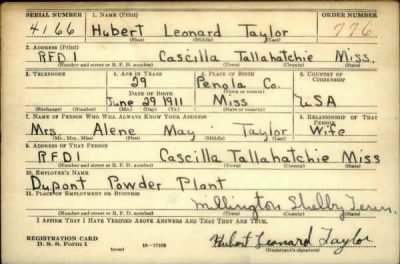 SERIAL NUMBER 1. NAME (Print) ORDER NUMBER
4166 Hubert Leonard Taylor 776
(First) (Middle) (Last)
2. ADDRESS (Print)
RFD 1 Cascilla Tallahatchie Miss.
(Number and street or R. F. D. number) (Town) (County) (State)
3. TELEPHONE 4. AGE IN YEARS 5. PLACE OF BIRTH 6. COUNTRY OF CITIZENSHIP
29 Penola Co.
DATE OF BIRTH (Town or county)
June 29 1911 Miss USA
(Exchange) (Number) (Mo.) (Day) (Yr.) (State or country)
7. NAME OF PERSON WHO WILL ALWAYS KNOW YOUR ADDRESS 8. RELATIONSHIP OF THAT PERSON
Mrs. Alene May Taylor Wife
(Mr., Mrs., Miss) (First) (Middle) (Last)
9. ADDRESS OF THAT PERSON
RFD1 Cascilla Tallahatchie Miss
(Number and street or R. F. D. number) (Town) (County) (State)
10. EMPLOYER'S NAME
Dupont Powder Plant
11. PLACE OF EMPLOYMENT OR BUSINESS
Millington Shelby Tenn.
(Number and street or R. F. D. number) (Town) (County) (State)
I AFFIRM THAT I HAVE VERIFIED ABOVE ANSWERS AND THAT THEY ARE TRUE.
REGISTRATION CARD
D. S. S. Form 1 (over) 16-17105 Hubert Leonard Taylor
(Registrant's signature)